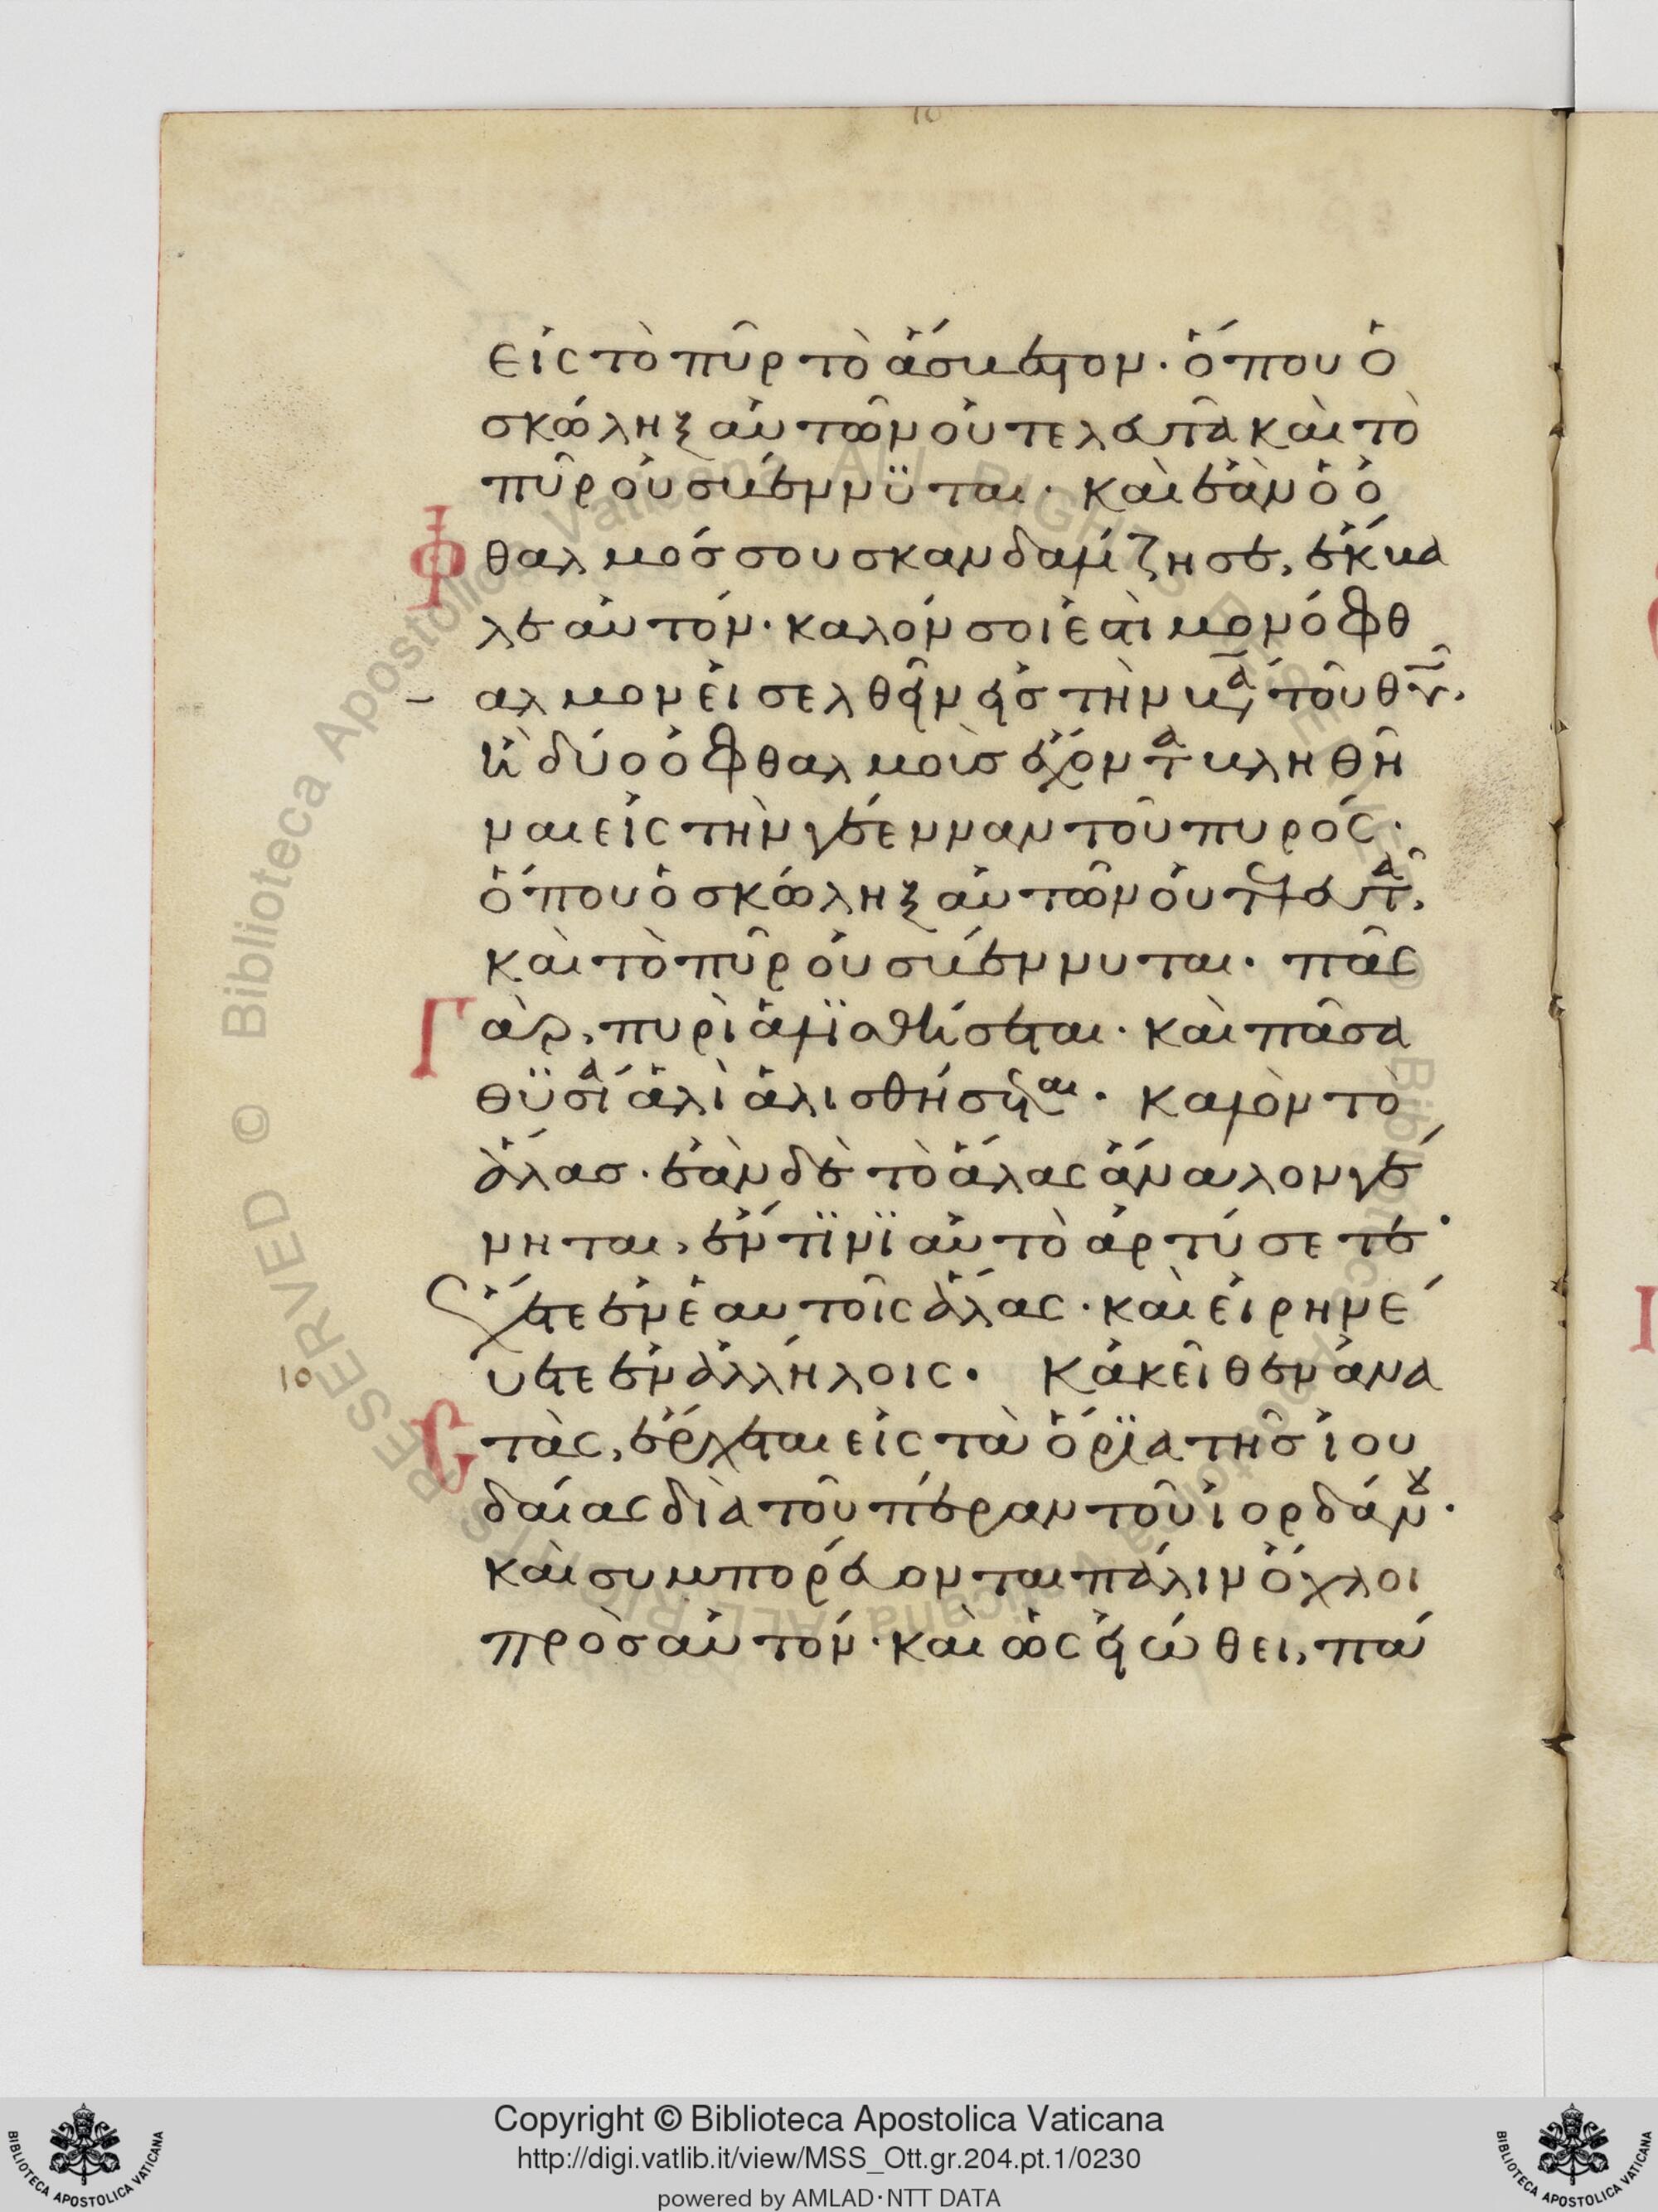 10
εἰς τὸ πῦρ τὸ ἄσβεστον· ὅπου ὁ
σκώληξ αὐτῶν οὐ τελευτᾶ καὶ τὸ
πῦρ οὐ σβέννϋται· καὶ ἐὰν ὁ ὀ
Φθαλμός σου σκανδαλίζη σε, ἔκβα
λε αὐτόν· καλόν σοι ἐστὶ μονόφθ
αλμον εἰσελθεῖν εἰς τὴν βα τοῦ θυ,
ἢ δύο ὀφθαλμοὺς ἔχοντα βληθῆ
ναι εἰς τὴν γέενναν τοῦ πυρός·
ὅπου ὁ σκώληξ αὐτῶν οὐ τελευτᾶ,
καὶ τὸ πῦρ οὐ σβέννυται· πᾶς
Γὰρ, πυρὶ ἁλϊσθήσεται· καὶ πᾶσα
θϋσία ἁλὶ ἁλισθήσεται· Καλὸν τὸ
ἅλας· ἐὰν δὲ τὸ ἅλας ἄναλον γέ
νηται, ἐν τίνϊ αὐτὸ ἀρτύσετε·
ἔχετε ἐν ἑαυτοῖς ἅλας· καὶ εἰρηνέ
υετε ἐν ἀλλήλοις· Κἀκεῖθεν ἀνα
10
Στὰς, ἔρχεται εἰς τὰ ὅρϊα τῆς ἰου
δαίας διὰ τοῦ πέραν τοῦ ἰορδάνου·
καὶ συμπορεύονται πάλιν ὄχλοι
πρὸς αὐτόν· καὶ ὡς εἰώθει, πά
Biblioteca Apostolica Vaticana ALL RIGHTS RESERVED ©
Copyright © Biblioteca Apostolica Vaticana
http://digi.vatlib.it/view/MSS_Ott.gr.204.pt.1/0230
powered by AMLAD·NTT DATA
BIBLIOTECA APOSTOLICA VATICANA
BIBLIOTECA APOSTOLICA VATICANA